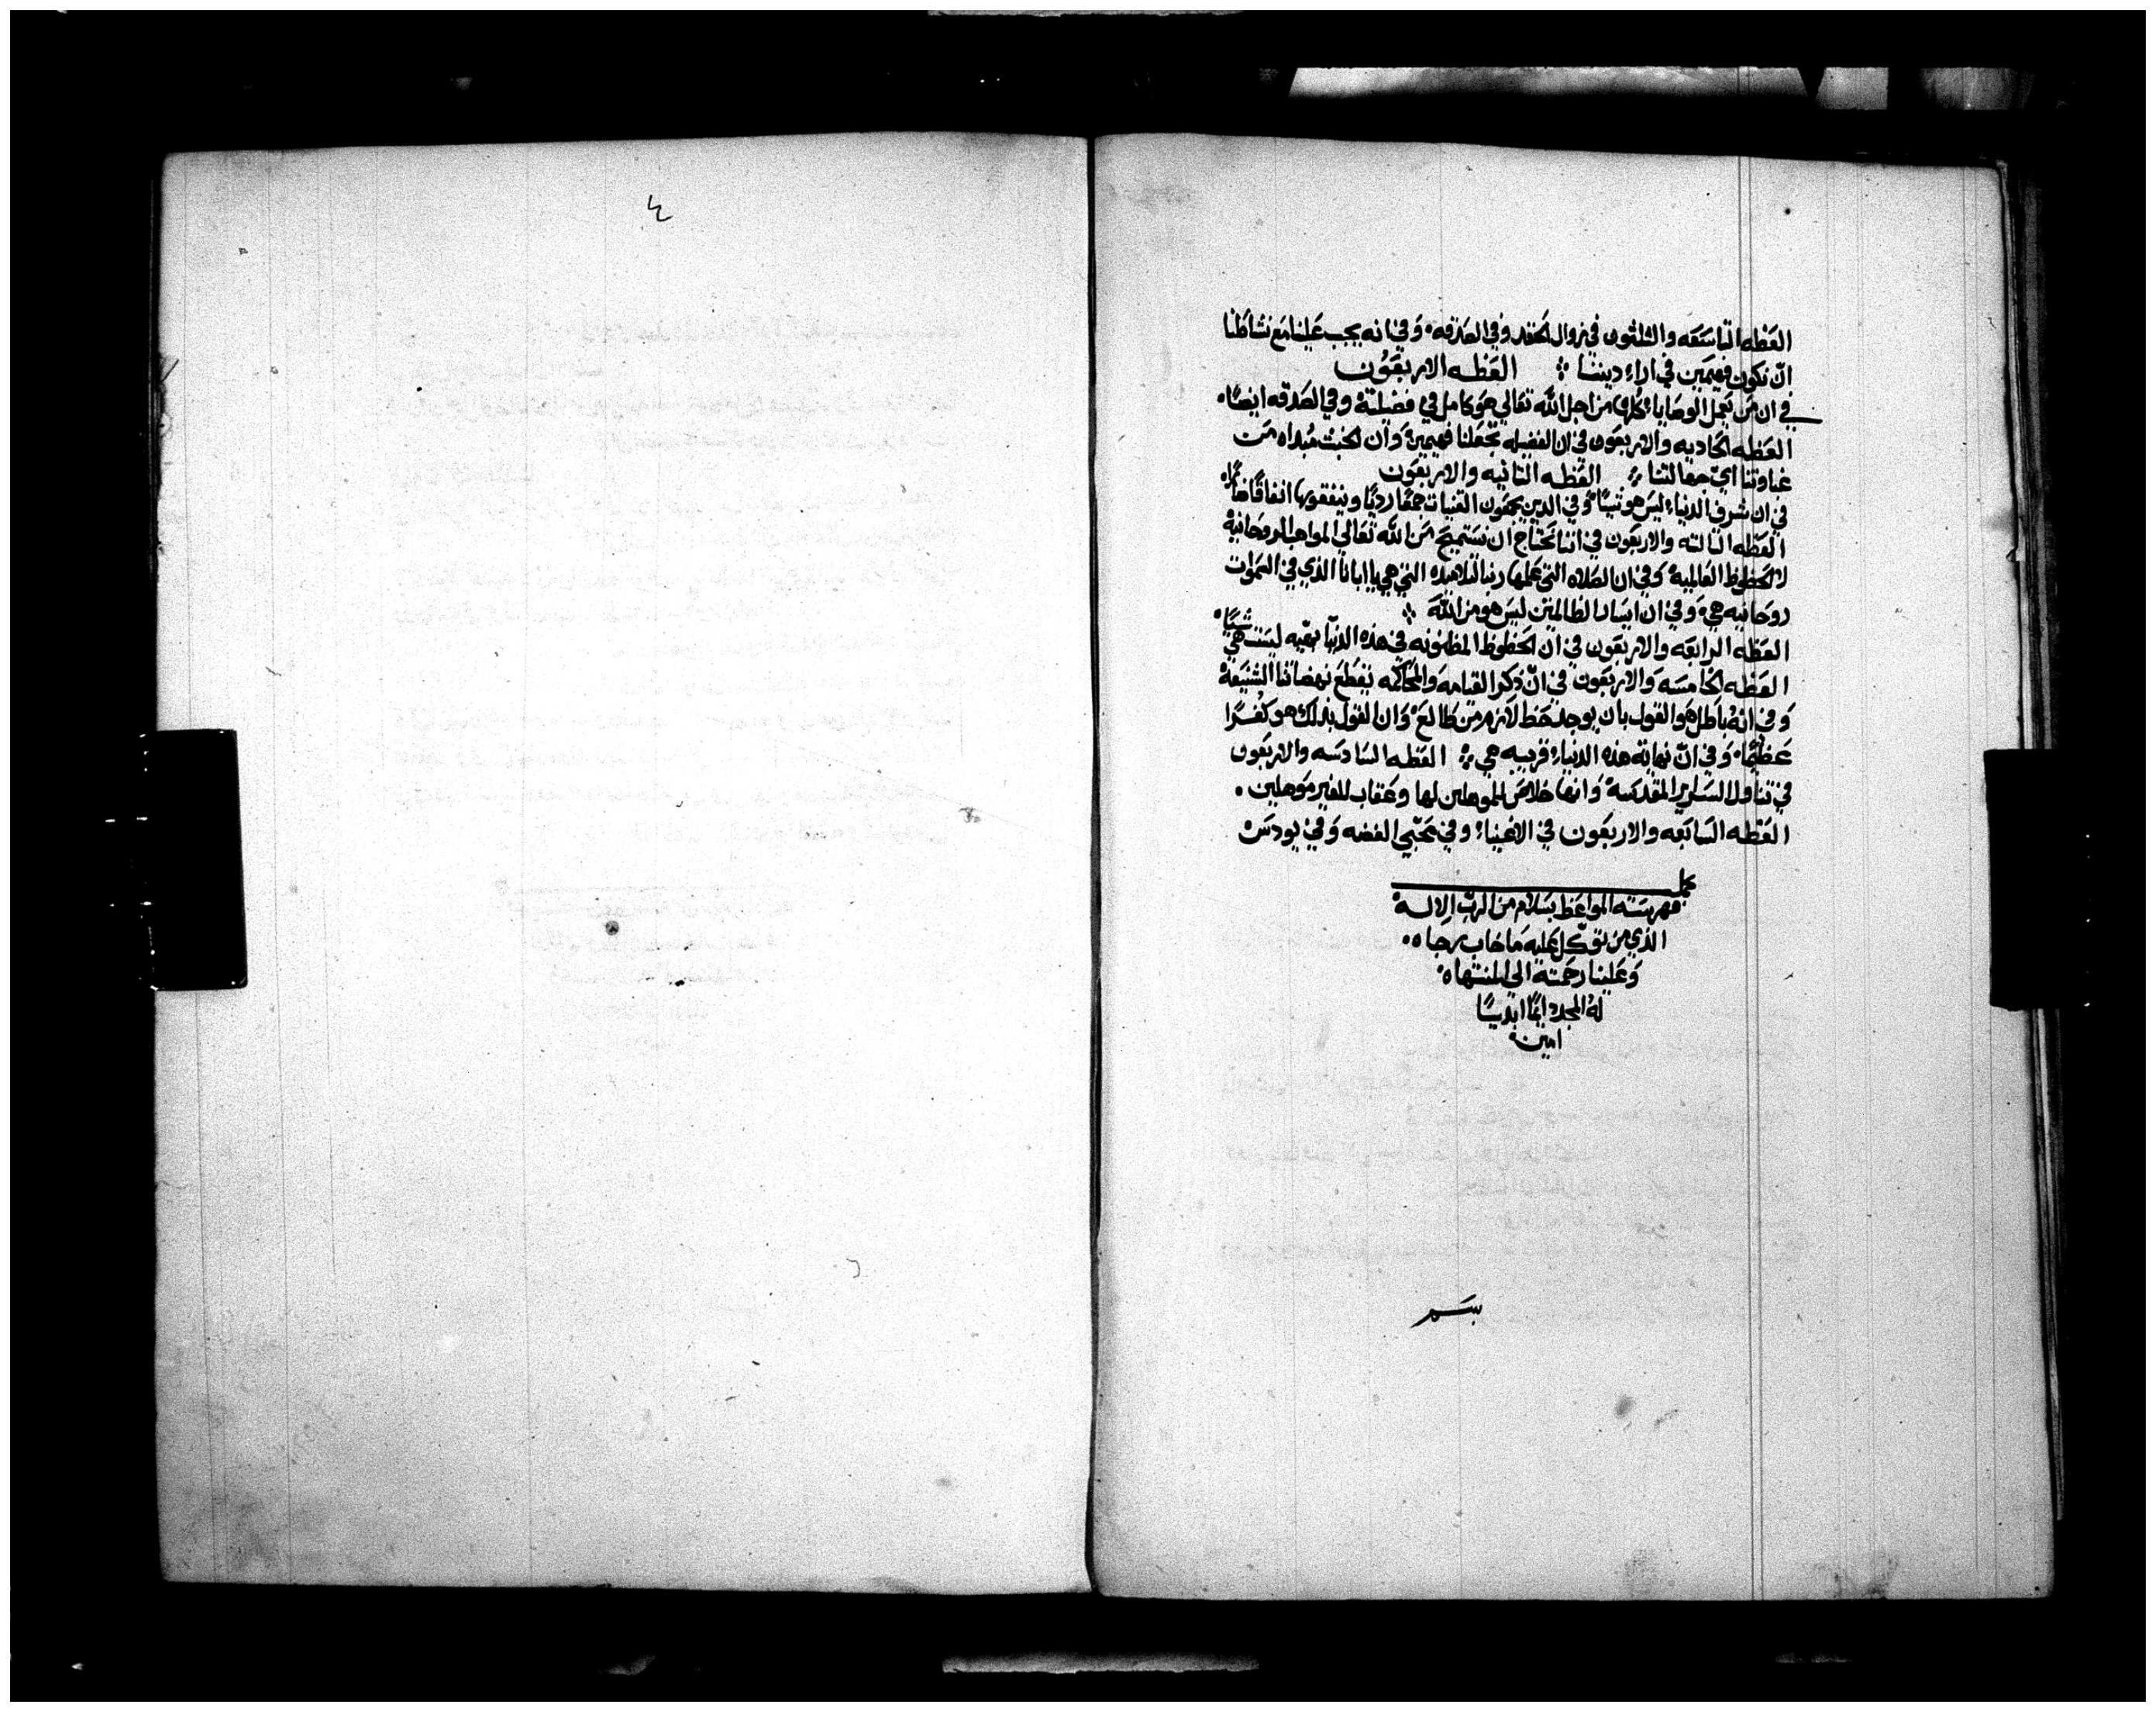 العظه التاسعه والثلثون في زوال الحقد وفي الصدقه وفي انه يجب علينا مع نشاطنا
ان نكون فهيمين في اراء ديننا العظه الاربعون
في ان من يعمل الوصايا كلها من اجل الله تعالي هو كامل في فضيلته وفي الصدقه ايضًا
العظه الحاديه والاربعون في ان الفضيله تجعلنا فهيمين وان الخبث مبداه من
غباوتنا اي جهالتنا العظه الثانيه والاربعون
في ان شرف الدنيا ليس هو شيئًا وفي الدين يجمعون القنيات جمعًا رديًا وينفقونها انفاقًا ضارًا
العظه الثالثه والاربعون في اننا نحتاج ان نستميح من الله تعالي المواهب الروحانيه
لا الحظوظ العالميه وفي ان الصلاه التي علمها ربنا لتلاميذه التي هي يا ابانا الذي في السموات
روحانيه هي وفي ان ايسار الظالمين ليس هو من الله
العظه الرابعه والاربعون في ان الحظوظ المظنونه في هذه الدنيا بهيه ليست هي شيًا
العظه الخامسه والاربعون في ان ذكر القيامه والمحاكمه يقطع نهضاتنا الشنيعة
وفي انه باطل هو القول بان يوجد حظ لازم من طالع وان القول بذلك هو كفرًا
عظيمًا وفي ان نهاية هذه الدنيا قريبه هي العظه السادسه والاربعون
في تناول السراير المقدسة وانها خلاص للموهلين لها وعقاب للغير موهلين
العظه السابعه والاربعون في الاغنياء وفي محبي الفضه وفي يودس
كمل
فهرسته المواعظ بسلام من الرب الاله
الذي من توكل عليه ما خاب رجاه
وعلينا رحمته الي المنتهاه
له المجد دايمًا ابديًا
امين
بسم
٤